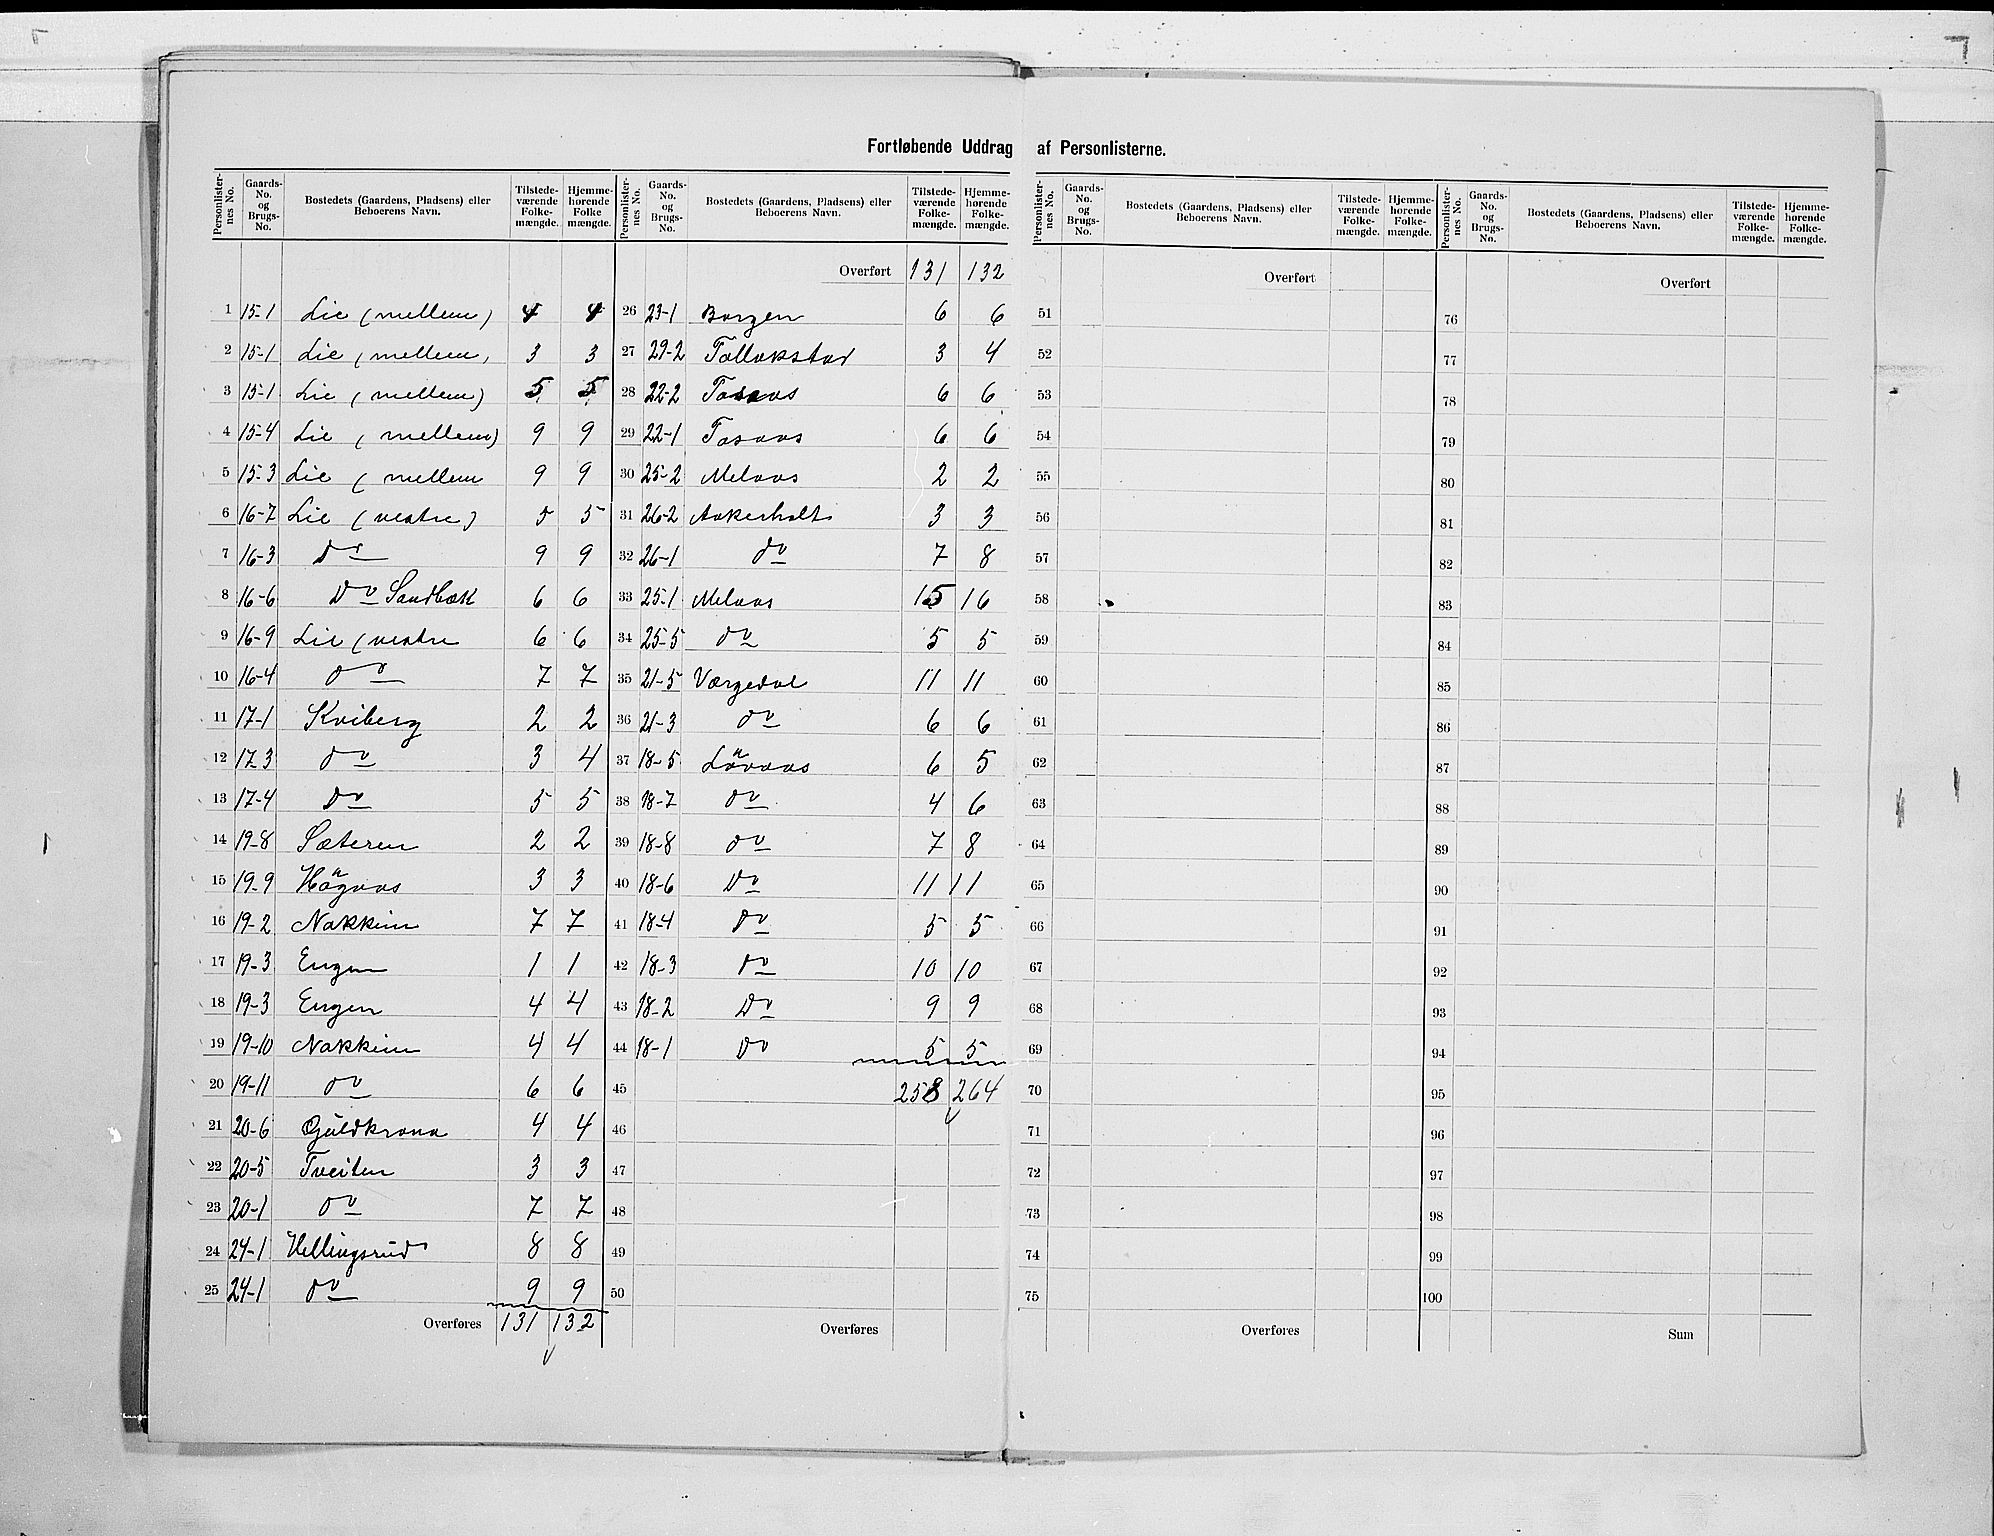 Fortløbende Uddrag af Personlisterne.
Personlister-nes No. Gaards-No. og Brugs-No. Bostedets (Gaardens, Pladsens) eller Beboerens Navn. Tilstede-værende Folke-mængde. Hjemme-hørende Folke mængde.
1 15-1 Lie (mellem) 4 4
2 15-1 Lie (mellem, 3 3
3 15-1 Lie (mellem) 5 5
4 15-4 Lie (mellem) 9 9
5 15-3 Lie (mellem 9 9
6 16-7 Lie (vestre) 5 5
7 16-3 Do 9 9
8 16-6 Do Sandbæk 6 6
9 16-9 Lie (vestre 6 6
10 16-4 do 7 7
11 17-1 Kviberg 2 2
12 17-3 do 3 4
13 17-4 Do 5 5
14 19-8 Sæteren 2 2
15 19-9 Högaas 3 3
16 19-2 Nakkim 7 7
17 19-3 Engen 1 1
18 19-3 Engen 4 4
19 19-10 Nakkim 4 4
20 19-11 do 6 6
21 20-6 Guldkrona 4 4
22 20-5 Tveiten 3 3
23 20-1 do 7 7
24 24-1 Hellingsrud 8 8
25 24-1 do 9 9
Overføres 131 132
Personlister-nes No. Gaards-No. og Brugs-No. Bostedets (Gaardens, Pladsens) eller Beboerens Navn. Tilstede-værende Folke-mængde. Hjemme-hørende Folke-mængde.
Overført 131 132
26 23-1 Borgen 6 6
27 29-2 Tollakstad 3 4
28 22-2 Tosaas 6 6
29 22-1 Tosaas 6 6
30 25-2 Melaas 2 2
31 26-2 Aakerholt 3 3
32 26-1 do 7 8
33 25-1 Melaas 15 16
34 25-5 do 5 5
35 21-5 Værgedal 11 11
36 21-3 do 6 6
37 18-5 Lövaas 6 5
38 18-7 do 4 6
39 18-8 do 7 8
40 18-6 Do 11 11
41 18-4 Do 5 5
42 18-3 Do 10 10
43 18-2 Do 9 9
44 18-1 Do 5 5
45 258 264
46
47
48
49
50
Overføres
Personlister-nes No. Gaards-No. og Brugs-No. Bostedets (Gaardens, Pladsens) eller Beboerens Navn. Tilstede-værende Folke-mængde. Hjemme-hørende Folke-mængde.
Overført
51
52
53
54
55
56
57
58
59
60
61
62
63
64
65
66
67
68
69
70
71
72
73
74
75
Overføres
Personlister-nes No. Gaards-No. og Brugs-No. Bostedets (Gaardens, Pladsens) eller Beboerens Navn. Tilstede-værende Folke-mængde. Hjemme-hørende Folke-mængde.
Overført
76
77
78
79
80
81
82
83
84
85
86
87
88
89
90
91
92
93
94
95
96
97
98
99
100
Sum